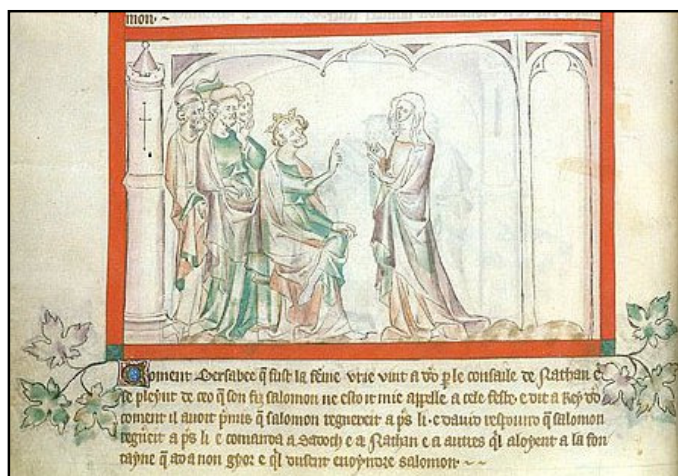 mon·~
Coment Bersabee q̄ fust la fēme vrie vint a dō p̄ le consaile de Nathan e
se pleynt de ceo q̄ son fiz salomon ne estoit mie apelle a cele feste· e dit a Rey dō
coment il auoit p̄mis q̄ salomon regnereit a p̄s li· e dauid respoūd q̄ salomon
regneit a p̄s li e comanda a Sadoch e a Nathan e a autres q̄l aloyent a la fon
tayne q̄ ad a non gyor e q̄l vusent enoyndre salomon·~~